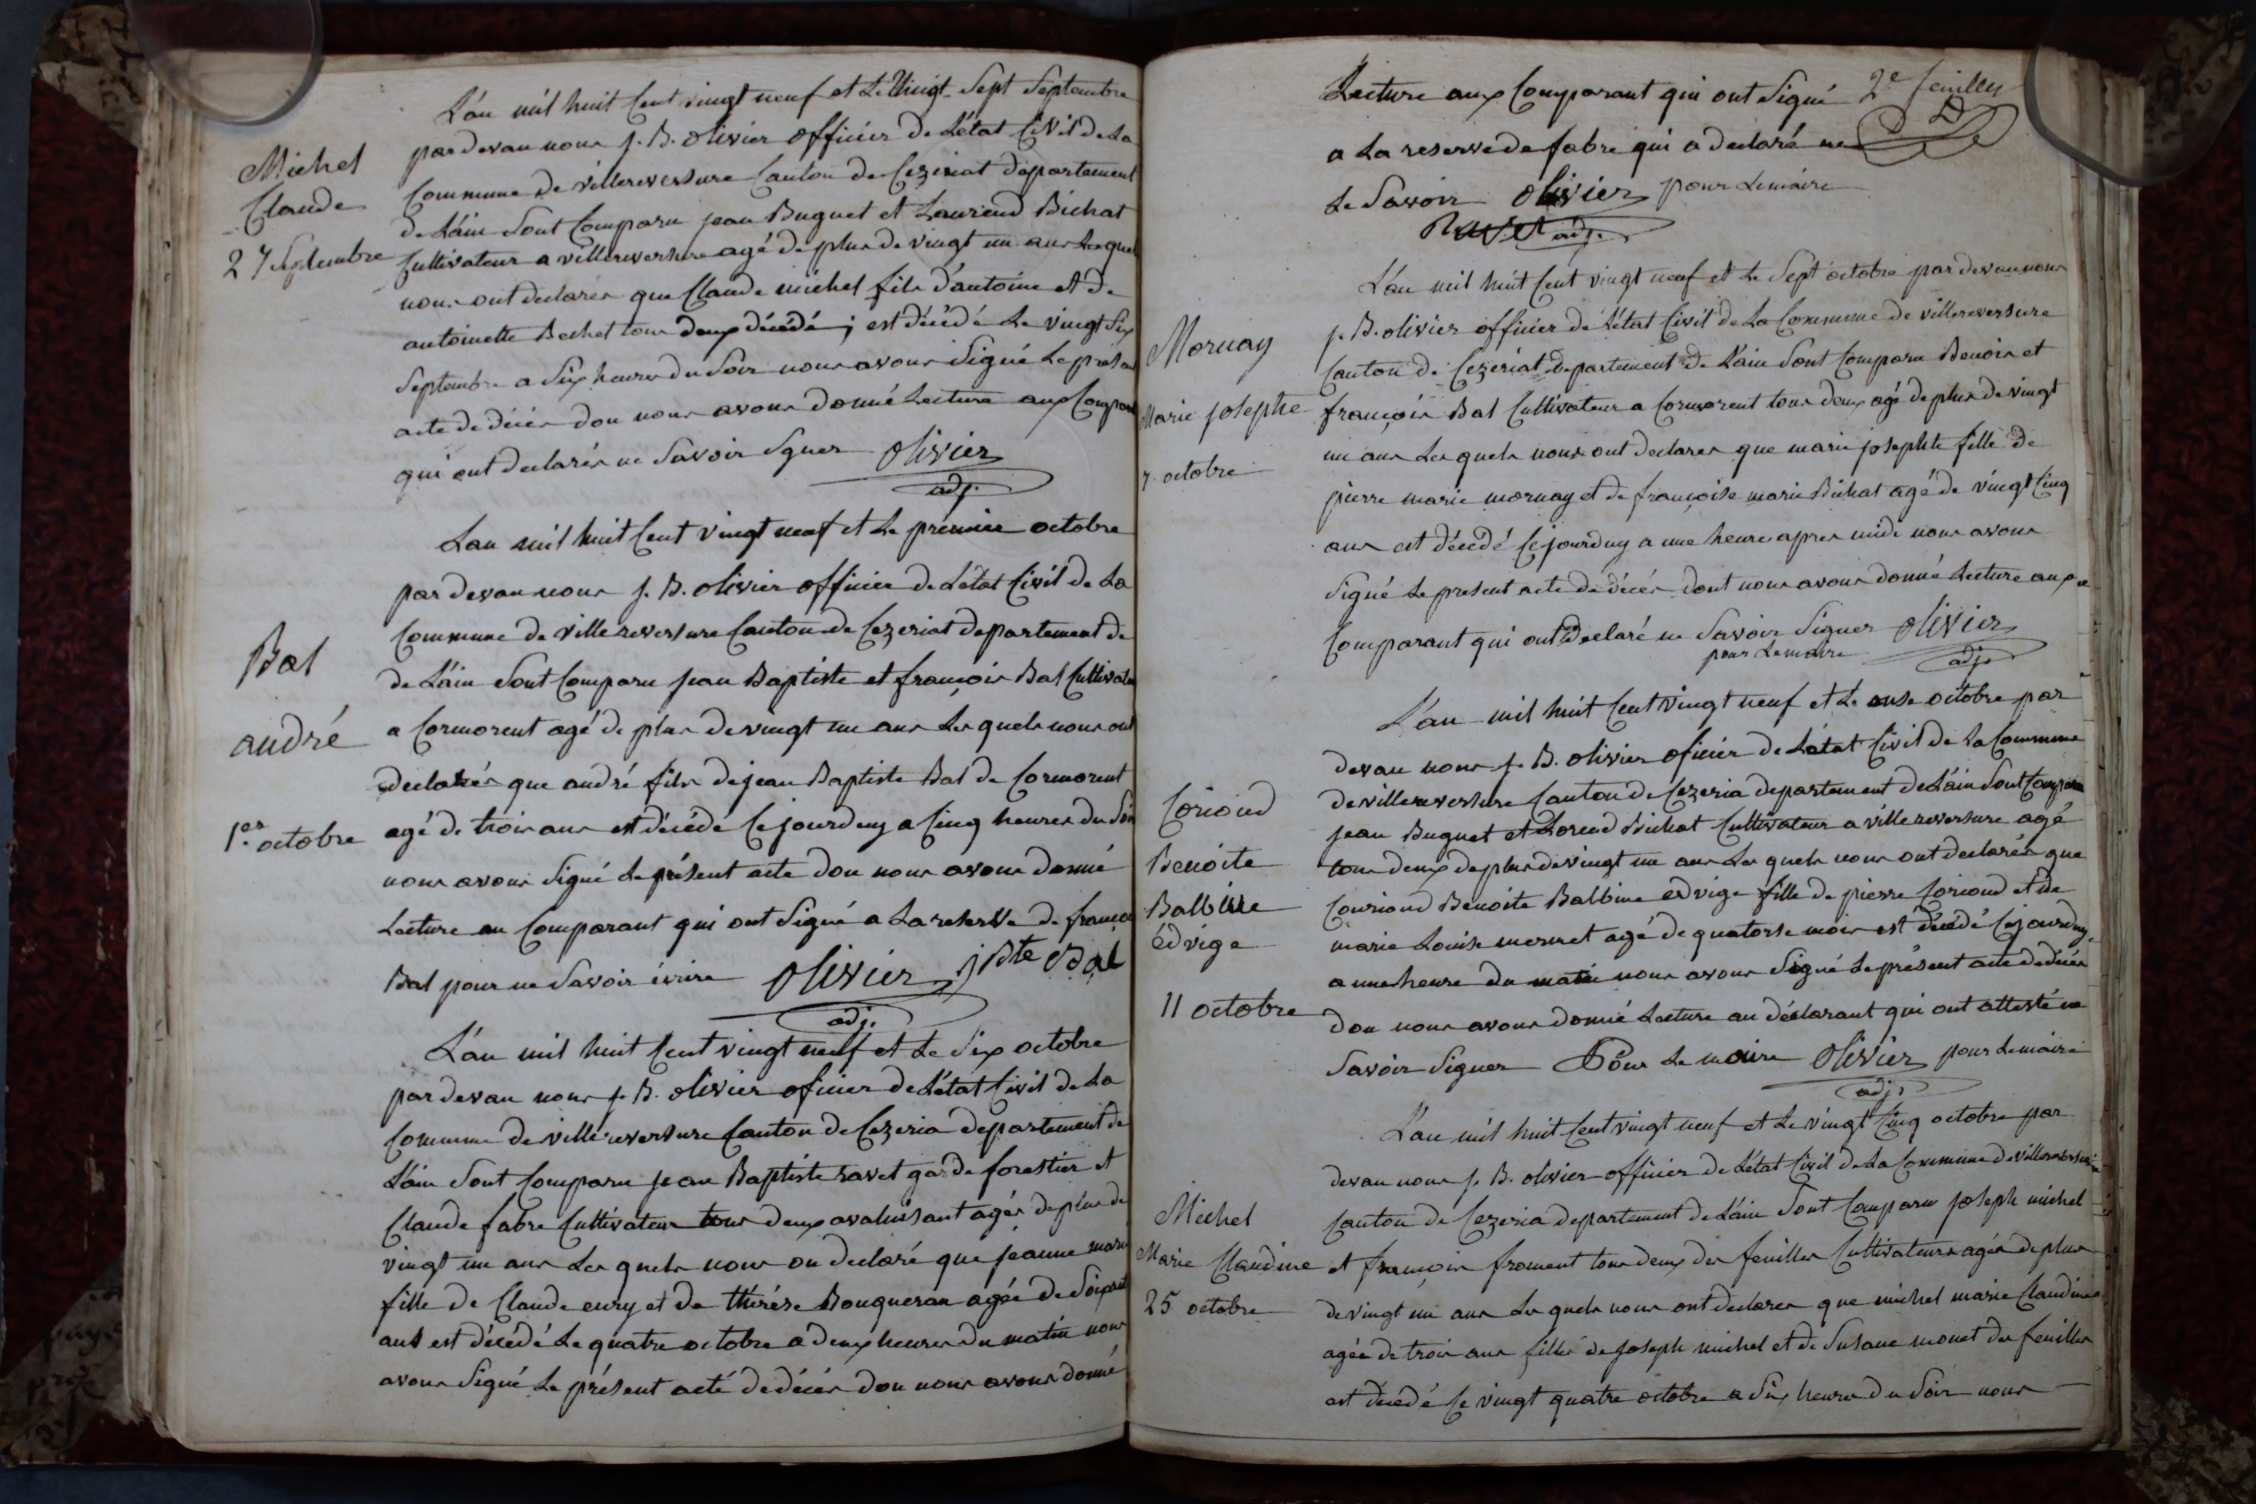 L'an mil huit Cent vingt neuf et Le Vingt Sept Septembre
par devan nous j. B. olivier officier de L'état Civil de La
Michel
Commune de villereversure Canton de Cezeriat département
Claude
de L'ain Sont Comparu jean Buguet et Laurend Bichat
27 Septembre
Cultivateur a villereversure agé de plus de vingt un ans Lesquel
nous ont declarés que Claude michel fils d'antoine et de
antoinette Bechet tous deux décédé ; est décédé Le vingt Six
Septembre a Six heures du Soir nous avons Signé Le présent
acte de décés don nous avons donné Lecture aux Comparant
qui ont declarés ne Savoir Signer olivier
adj.
L'an mil huit Cent vingt neuf et Le premier octobre
par devan nous j. B. olivier officier de L'état Civil de La
Commune de villereversure Canton de Cezeriat departement de
Bal
de L'ain Sont Comparu jean Baptiste et françois Bal Cultivateur
andré
a Cormorent agé de plus de vingt un ans Les quels nous ont
declarés que andré fils de jean Baptiste Bal de Cormorent
1er octobre
agé de trois ans est décédé Ce jourduy a Cinq heures du Soir
nous avons Signé Le présent acte don nous avons donné
Lecture au Comparant qui ont Signé a La reserve de françois
Bal pour ne Savoir écrire olivier j Bte Bal
adj.
L'an mil huit Cent vingt neuf et Le Six octobre
par devan nous j. B. olivier oficier de L'état Civil de La
Commune de villereversure Canton de Cezeria departement de
L'ain Sont Comparu jean Baptiste ravet garde forestier et
Claude fabre Cultivateur tous deux agés de plus de
vingt un ans Les quels nous on declaré que jeanne marie
fille de Claude eury et de thérése Bouqueran agée de Soixante
ans est décédé Le quatre octobre a deux heures du matin nous
avons Signé Le présent acté de décés don nous avons donné
2e feuilles
Lecture aux Comparant qui ont Signé
a La reserve de fabre qui a declaré ne
Le Savoir olivier pour Lemaire
Ravet adj.
L'an mil huit Cent vingt neuf et Le Sept octobre par devan nous
Mornay
j. B. olivier officier de L'état Civil de La Commune de villereversure
Canton de Cezeriat departement de L'ain Sont Comparu Benoir et
Marie josephe
françois Bal Cultivateur a Cormorent tous deux agé de plus de vingt
un ans Les quels nous ont declarer que marie josephte fille de
7 octobre
pierre marie mornay et de françoise marie Bichat agé de vingt Cinq
ans est décedé Cejourduy a une heure apres midi nous avons
Signé Le present acte de décés dont nous avons donné Lecture aux
Comparant qui ont declaré ne Savoir Signer olivier
pour Lemaire adj.
L'an mil huit Cent Vingt neuf et Le onse octobre par
devan nous j. B. olivier oficier de L'état Civil de La Commune
Coriond
de villereversure Canton de Cezeria departement de L'ain Sont Comparu
jean Buguet et Lorend Bichat Cultivateur a villereversure agé
Benoite
tous deux de plus de vingt un ans Les quels nous ont declarés que
Balbine
Couriond Benoite Balbine edvige fille de pierre Coriond et de
édvige
marie Louise mermet agé de quatorse mois est décédé Cejourduy
a une heure du matin nous avons Signé Le présent acte de décés
11 octobre
don nous avons donné Lecture au déclarant qui ont attesté ne
Savoir Signer Pour Le maire olivier pour Lemaire
adj.
L'an mil huit Cent vingt neuf et Le vingt Cinq octobre par
devan nous j. B. olivier officier de L'état Civil de La Commune de villereversure
Michel
Canton de Cezeria departement de L'ain Sont Comparu joseph michel
Marie Claudine
et françois froment tous deux des feuilles Cultivateurs agés de plus
25 octobre
de vingt un ans Les quels nous ont declarer que michel marie Claudine
agée de trois ans fille de joseph michel et de Susane monet des feuilles
est décédé Le vingt quatre octobre a Six heures du Soir nous